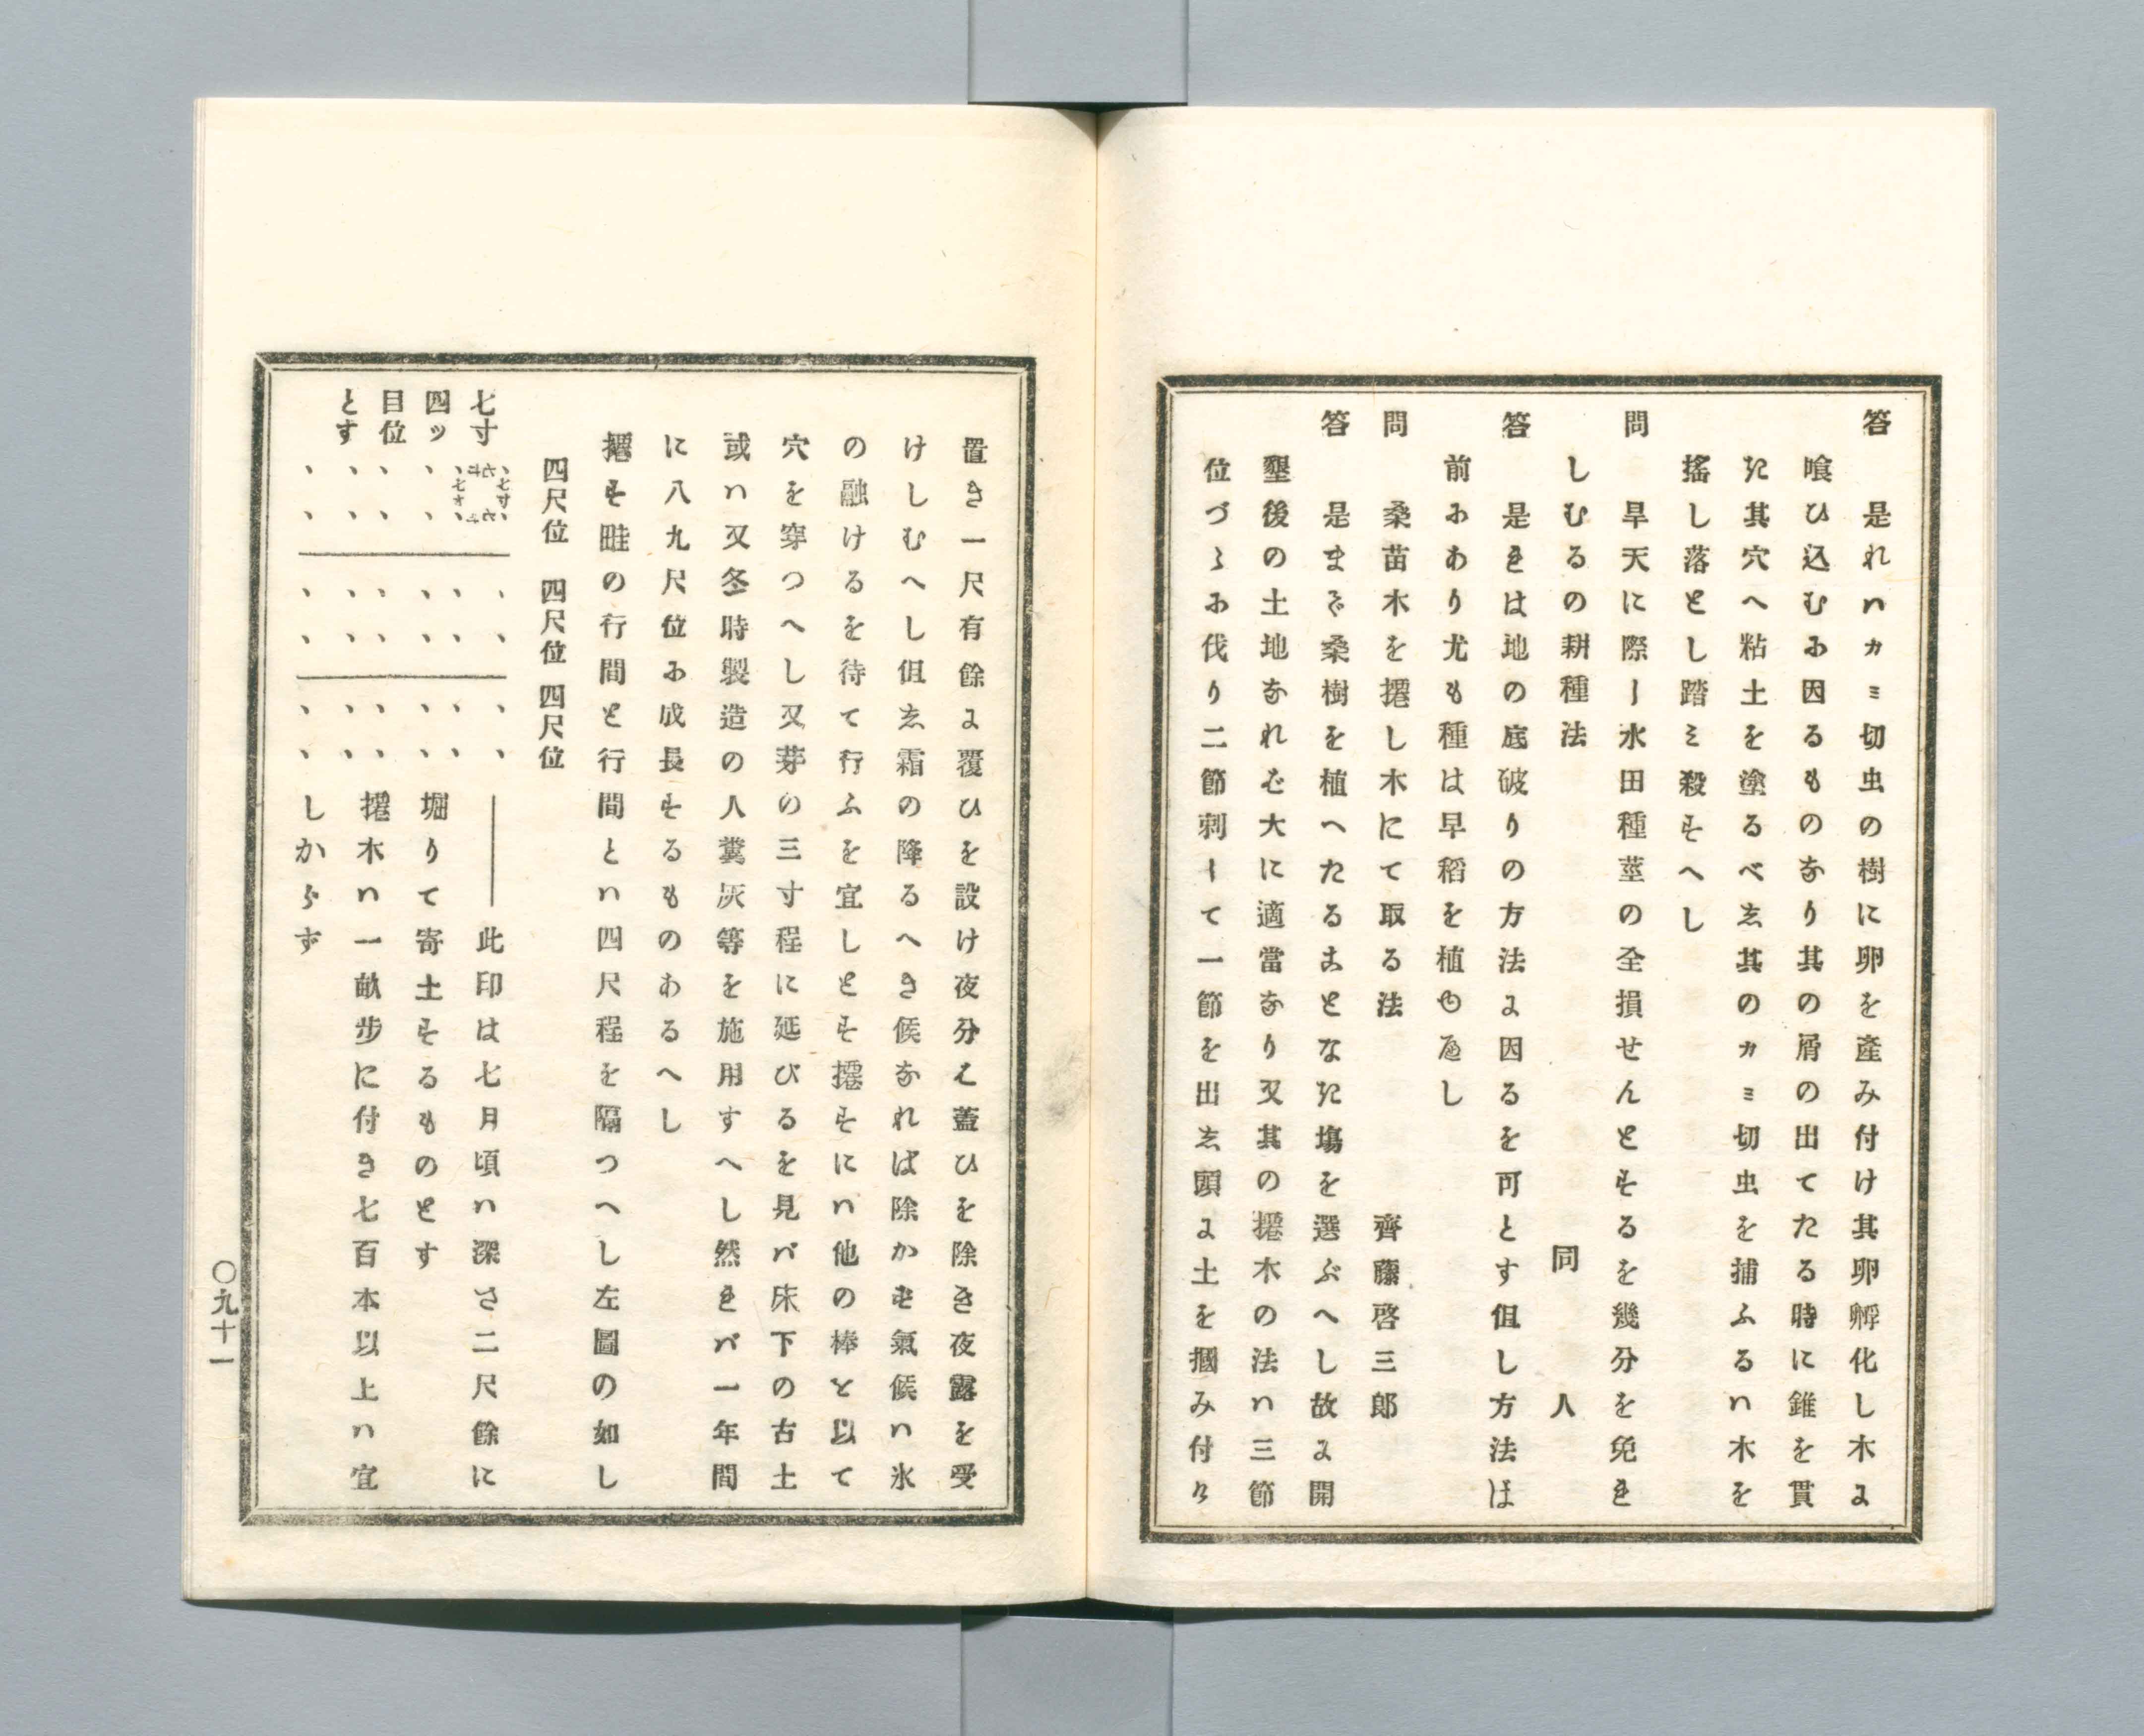 答　是れハカミ切虫の樹に卵を産み付け其卵孵化し木に
喰ひ込むに因るものなり其の屑の出てたる時に錐を貫
き其穴へ粘土を塗るべし其のカミ切虫を捕ふるハ木を
搖し落とし踏ミ殺すへし
問　旱天に際し水田種莖の全損せんとするを幾分を免れ
しむるの耕種法　同人
答　是れは地の底破りの方法に因るを可とす但し方法は
前にあり尤も種は早稻を植ゆ可し
問　桑苗木を摺し木にて取る法　齊藤啓三郎
答　是まで桑樹を植へたることなき塲を選ぶへし故に開
墾後の土地なれば大に適當なり又其の摺木の法ハ三節
位づゝに伐り二節刺して一節を出し頭に土を摑み付け
置き一尺有餘に覆ひを設け夜分ハ蓋ひを除き夜露を受
けしむへし但し霜の降るへき候なれば除かむ氣候ハ氷
の融けるを待て行ふを宜しとす摺すにハ他の棒を以て
穴を穿つへし又芽の三寸程に延びるを見バ床下の古土
或ハ又冬時製造の人糞灰等を施用すへし然れバ一年間
に八九尺位に成長するものあるへし
摺す畦の行間と行間とハ四尺程を隔つへし左圖の如し
四尺位　四尺位　四尺位
七寸
四ッ
目位
とす
七寸
七寸
此印は七月頃ハ深さ二尺餘に
堀りて寄土するものとす
摺木ハ一畝歩に付き七百本以上ハ宜
しからず
〇九十一